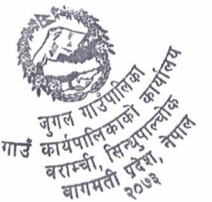 जुगल गाउँपालिका
गाउँ कार्यपालिकाको कार्यालय
वराम्ची, सिन्धुपाल्चोक
वागमती प्रदेश, नेपाल
२०७३